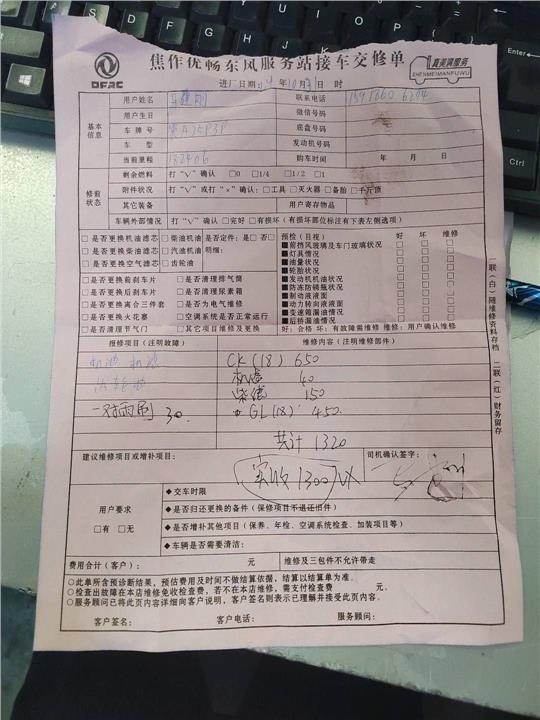 焦作优畅东风服务站接车交修单
DFAC
真美满服务
ZHENMEIMANFUWU
进厂日期: 年10月 日 时
基本信息
用户姓名
联系电话
用户生日
微信号码
车牌号
底盘号码
车型
发动机号码
当前里程 132406
购车时间 年 月 日
修前状态
剩余燃料 打“V”确认 □0 □1/4 □1/2 □1
附件状况 打“V”或打“×”确认:□工具□灭火器□备胎□千斤顶
其它装备
用户寄存物品
车辆外部情况 打“V”确认□完好 □有损坏(有损坏部位标注有下表左侧选项)
□是否更换机油滤芯 □柴油机油 是否定件:是□ 否□
□是否更换柴油滤芯 □汽油机油 明细:
□是否更换空气滤芯 □齿轮油
□是否更换前刹车片 □是否清理排气筒
□是否更换后刹车片 □是否清理尿素箱
□是否更换离合三件套 □是否为电气维修
□是否更换火花塞 □空调系统是否正常运行
□是否清理节气门 □其它项目维修及更换
预检(目视) 好 坏 维修
■前挡风玻璃及车门玻璃状况 □ □ □
■灯具情况 □ □ □
■油量状况 □ □ □
■轮胎状况 □ □ □
■发动机机油状况 □ □ □
■防冻防锈瓶状况 □ □ □
■制动液液面 □ □ □
■动力转向液液面 □ □ □
■变速箱漏油情况 □ □ □
■后桥漏油情况 □ □ □
好:合格 坏:有故障需维修 维修:用户确认维修
一联(白)随维修资料存档 二联(红)财务留存
报修项目(注明故障)
维修内容(注明维修部件)
机油 机滤
一对雨刷 30.
CK(18) 650
机滤 40
柴滤 150
GL(18) 450
共计 1320
实收1300
建议维修项目或增补项目:
司机确认签字:
用户要求
□有 □无
◆交车时限
◆是否归还更换的备件(保修项目不退还旧件)
◆是否增补其他项目(保养、年检、空调系统检查、加装项目等)
◆车辆是否需要清洁:
费用合计(客户): 元
维修及三包件不允许带走
○此单所含预诊断结果,预估费用及时间不做结算依据,结算以结算单为准。
○检查出故障在本店维修免收检查费,若不在本店维修,需支付检查费 元。
○服务顾问已将此页内容详细向客户说明,客户签名则表示已理解并接受此页内容。
客户签名: 客户电话: 服务顾问: